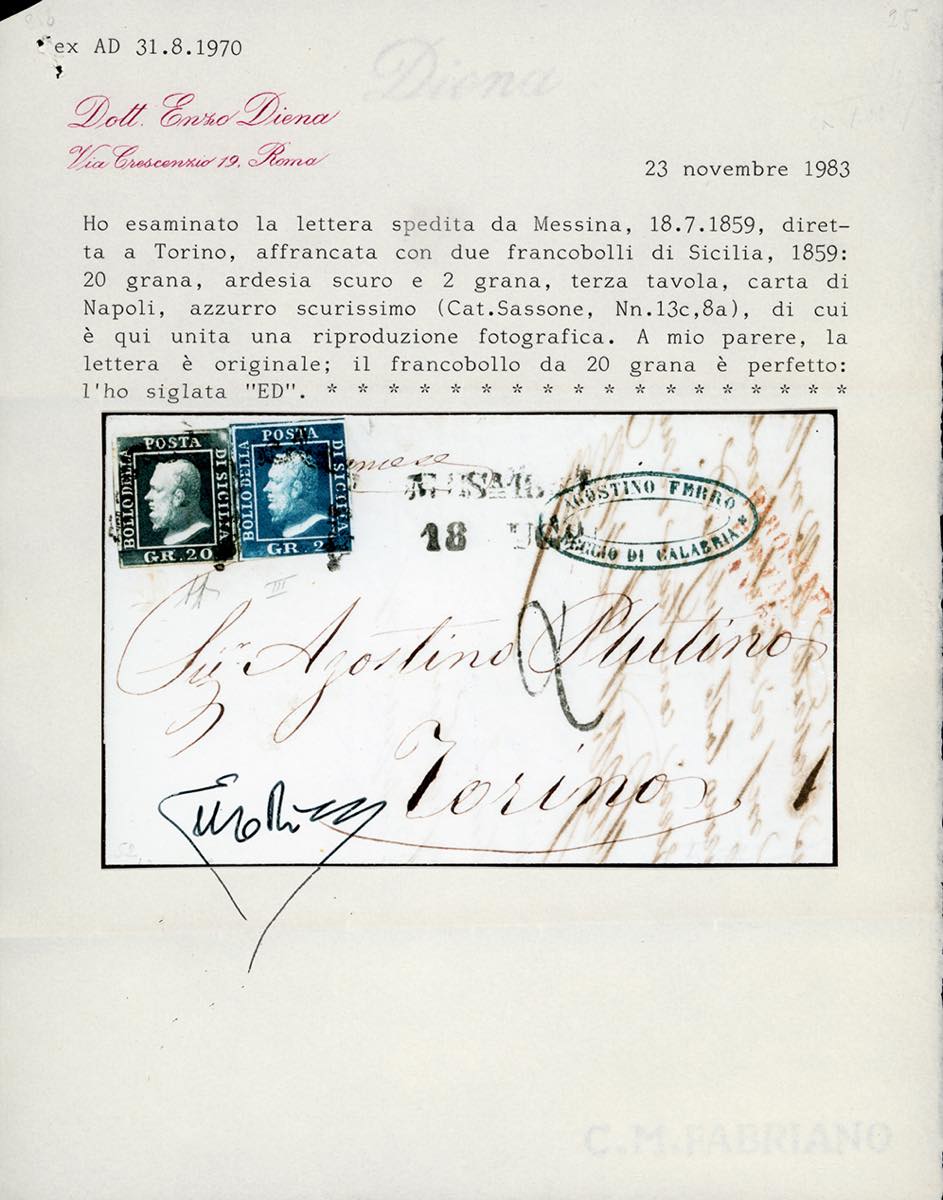 ex AD 31.8.1970
Diena
Dott. Enzo Diena
Via Crescenzio 19, Roma
23 novembre 1983
Ho esaminato la lettera spedita da Messina, 18.7.1859, diret-
ta a Torino, affrancata con due francobolli di Sicilia, 1859:
20 grana, ardesia scuro e 2 grana, terza tavola, carta di
Napoli, azzurro scurissimo (Cat.Sassone, Nn.13c,8a), di cui
è qui unita una riproduzione fotografica. A mio parere, la
lettera è originale; il francobollo da 20 grana è perfetto:
l'ho siglata "ED". * * * * * * * * * * * * * * * * *
BOLLO DELLA POSTA DI SICILIA
GR. 20
BOLLO DELLA POSTA DI SICILIA
GR. 2
18
AGOSTINO FERRO
REGGIO DI CALABRIA
III
2
Sig.r Agostino Plutino
Torino
C.M.FABRIANO